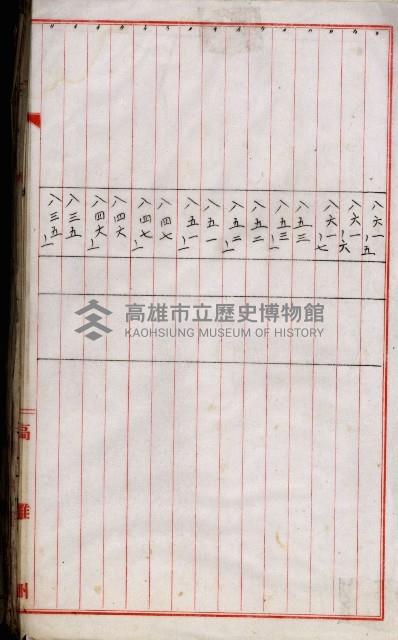 八六一ノ五
八六一ノ六
八六一ノ七
八五三
八五三ノ一
八五二
八五二ノ一
八五一
八五一ノ一
八四七
八四七ノ一
八四六
八四六ノ一
八三五
八三五ノ一
高雄市立歷史博物館
KAOHSIUNG MUSEUM OF HISTORY
高雄